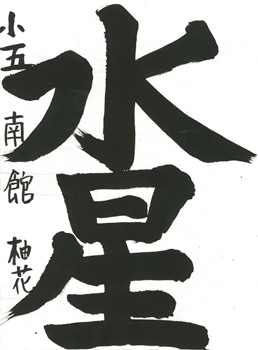 水星
小五 南館 柚花